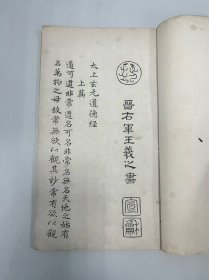 晉右軍王羲之書
太上玄元道德經
上篇
道可道非常道名可名非常名無名天地之始有
名萬物之母故常無欲以觀其妙常有欲以觀